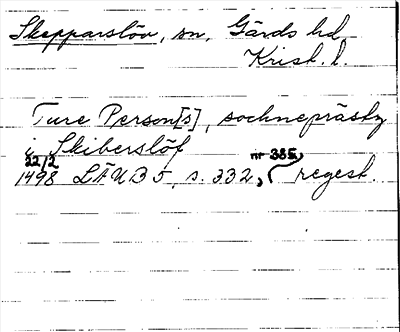 Skepparslöv, sn, Gärds hd
Krist. l.
Ture Person[s], socknepräsky
i Skiberslöf
22/2
1498 LÄUB 5, s. 332, nr 385, regest.